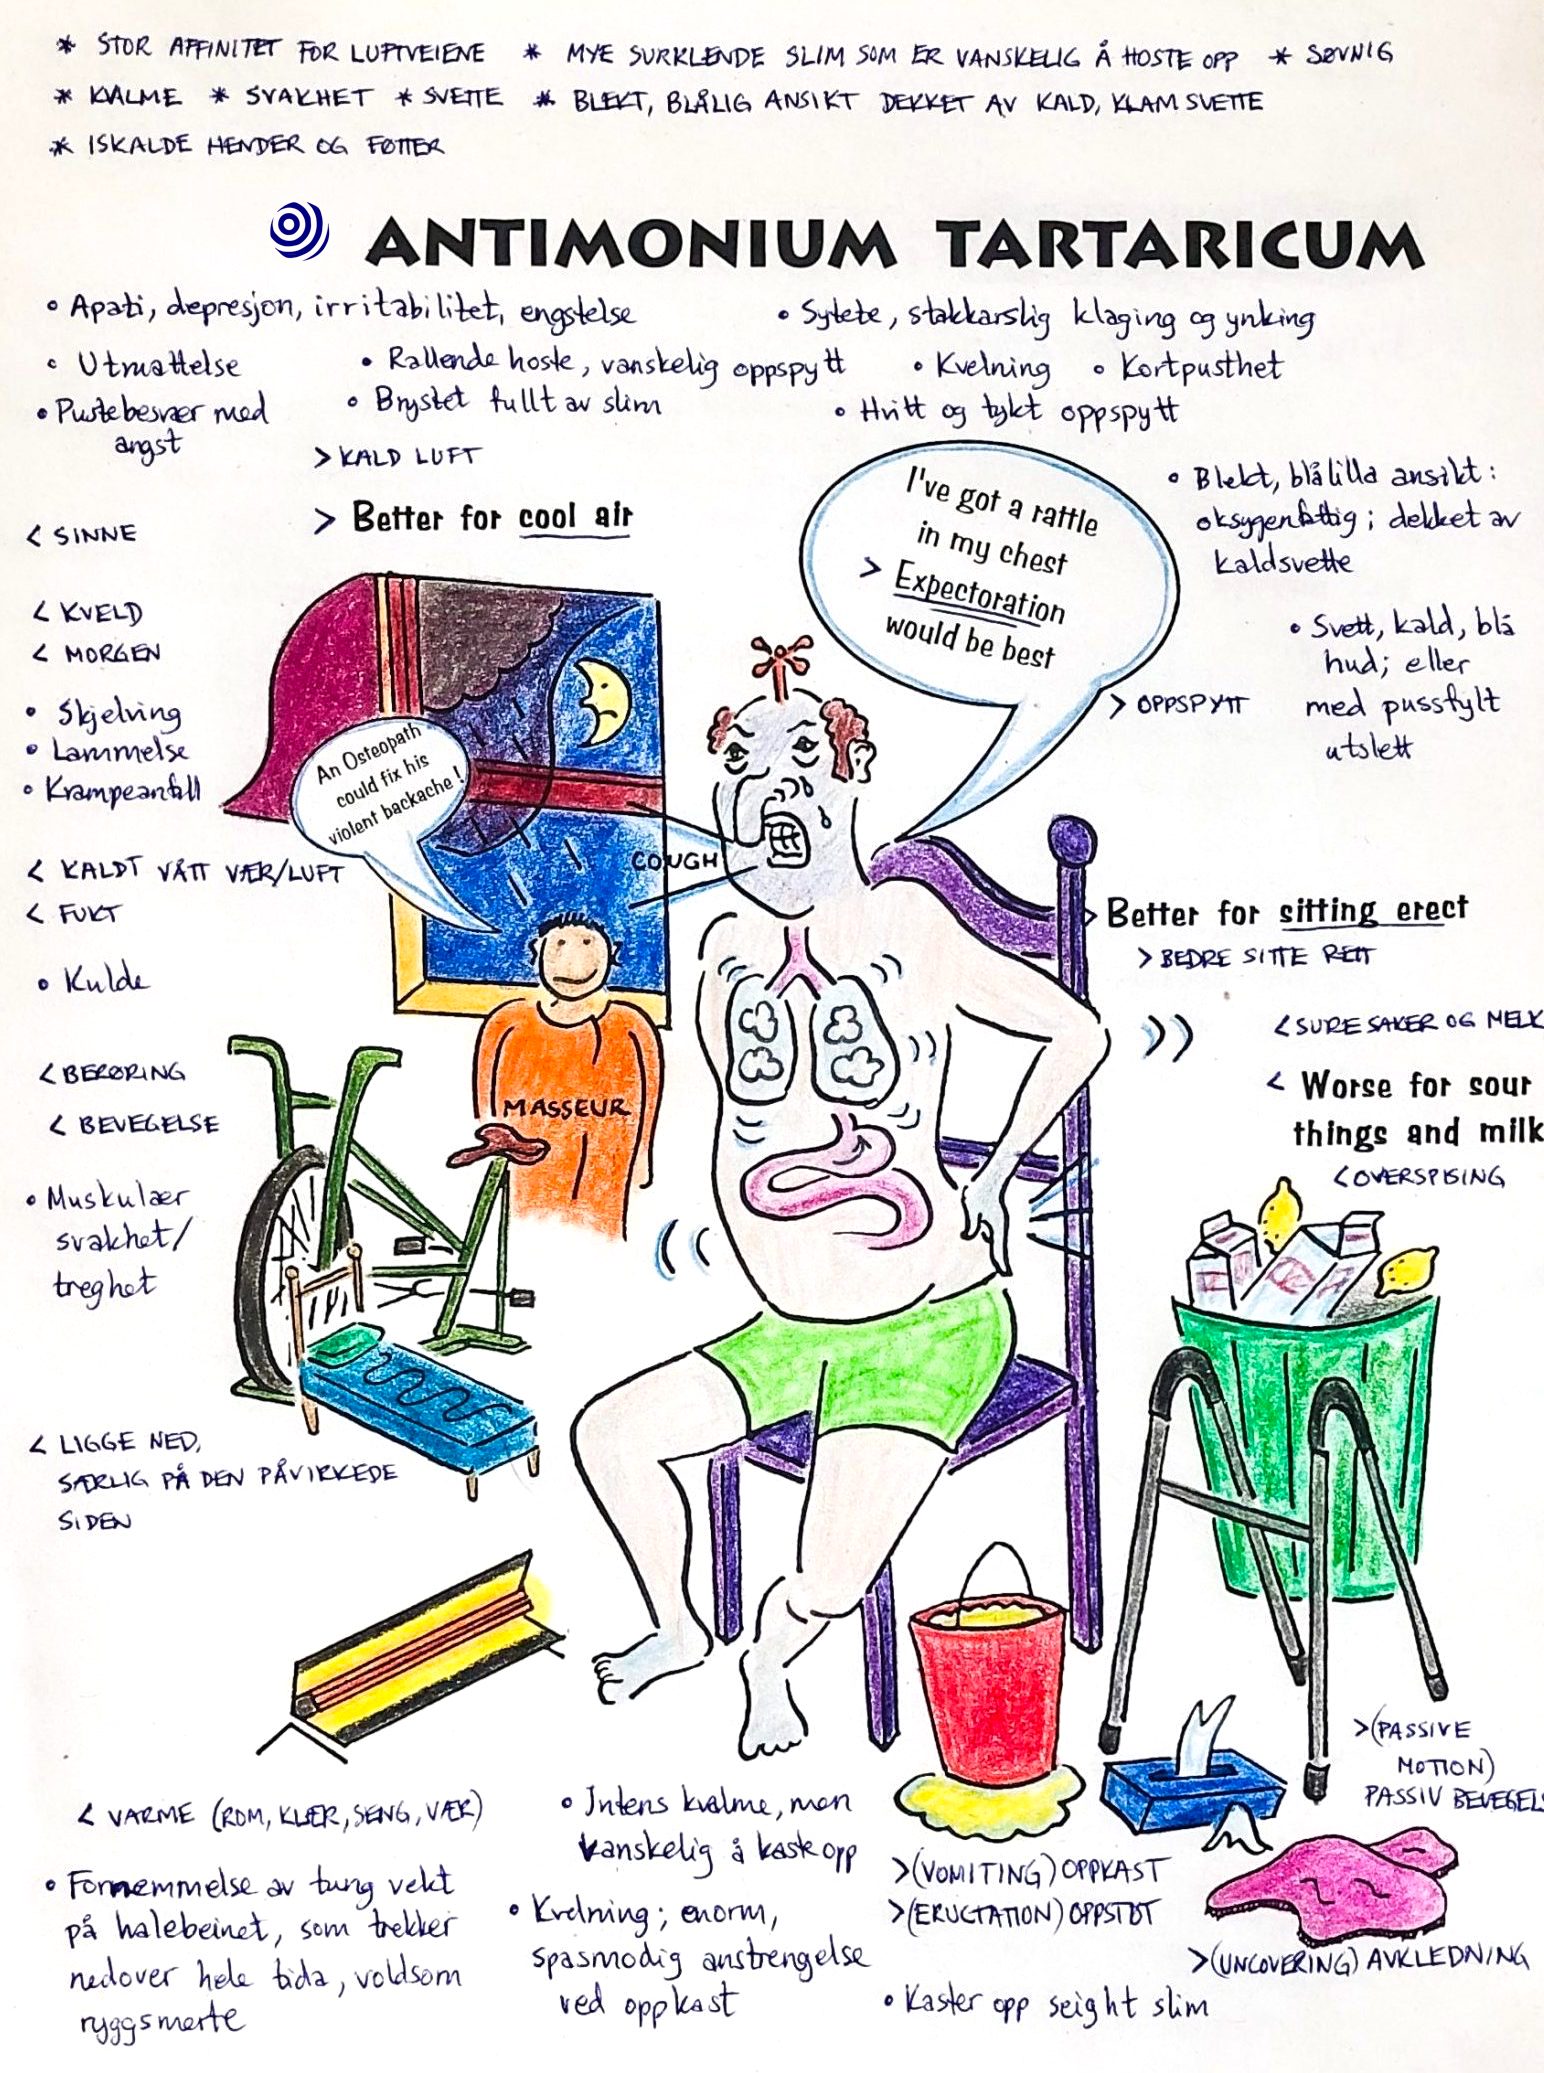 * STOR AFFINITET FOR LUFTVEIENE * MYE SURKLENDE SLIM SOM ER VANSKELIG Å HOSTE OPP * SØVNIG
* KVALME * SVAKHET * SVETTE * BLEKT, BLÅLIG ANSIKT DEKKET AV KALD, KLAM SVETTE
* ISKALDE HENDER OG FØTTER
ANTIMONIUM TARTARICUM
• Apati, depresjon, irritabilitet, engstelse
• Sytete, stakkarslig klaging og ynking
• Utmattelse
• Rallende hoste, vanskelig oppspytt
• Kvelning • Kortpusthet
• Pustebesvær med
angst
• Brystet fullt av slim
• Hvitt og tykt oppspytt
> KALD LUFT
> Better for cool air
I've got a rattle
in my chest
> Expectoration
would be best
• Blekt, blålilla ansikt:
oksygenfattig; dekket av
kaldsvette
< SINNE
< KVELD
< MORGEN
• Svett, kald, blå
hud; eller
med pussfylt
utslett
> OPPSPYTT
• Skjelving
• Lammelse
• Krampeanfall
An Osteopath
could fix his
violent backache!
COUGH
< KALDT VÅTT VÆR/LUFT
< FUKT
> Better for sitting erect
> BEDRE SITTE RETT
• Kulde
< SURE SAKER OG MELK
< Worse for sour
things and milk
< OVERSPISING
< BERØRING
< BEVEGELSE
MASSEUR
• Muskulær
svakhet/
treghet
< LIGGE NED,
SÆRLIG PÅ DEN PÅVIRKEDE
SIDEN
>(PASSIVE
MOTION)
PASSIV BEVEGELS
< VARME (ROM, KLÆR, SENG, VÆR)
• Intens kvalme, men
vanskelig å kaste opp
>(VOMITING) OPPKAST
>(ERUCTATION) OPPSTØT
>(UNCOVERING) AVKLEDNING
• Fornemmelse av tung vekt
på halebeinet, som trekker
nedover hele tida, voldsom
ryggsmerte
• Kvelning; enorm,
spasmodig anstrengelse
ved oppkast
• Kaster opp seight slim